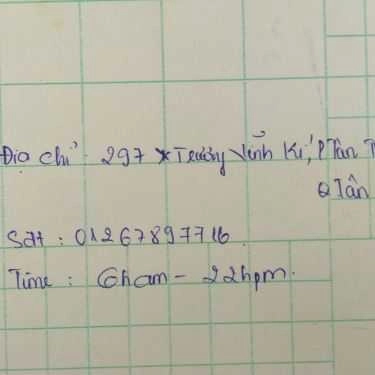 Địa chỉ : 297 Trương Vĩnh Kí, P Tân T
Q Tân
Sđt : 01267897716
Time : 6ham - 22hpm.